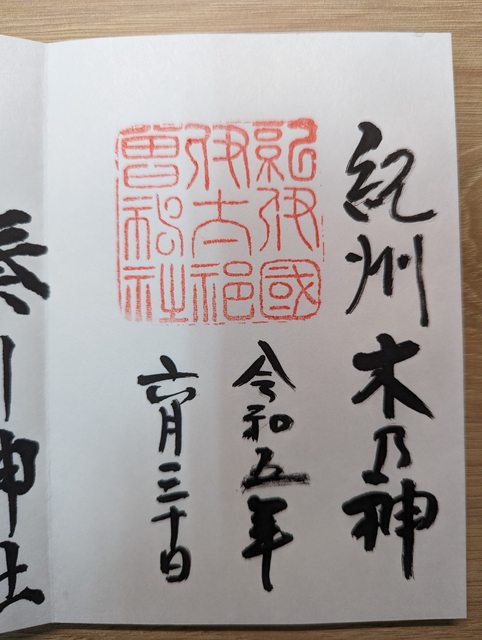 紀州木乃神
紀伊國
伊太祁
曾神社
令和五年
六月三十日
湊川神社